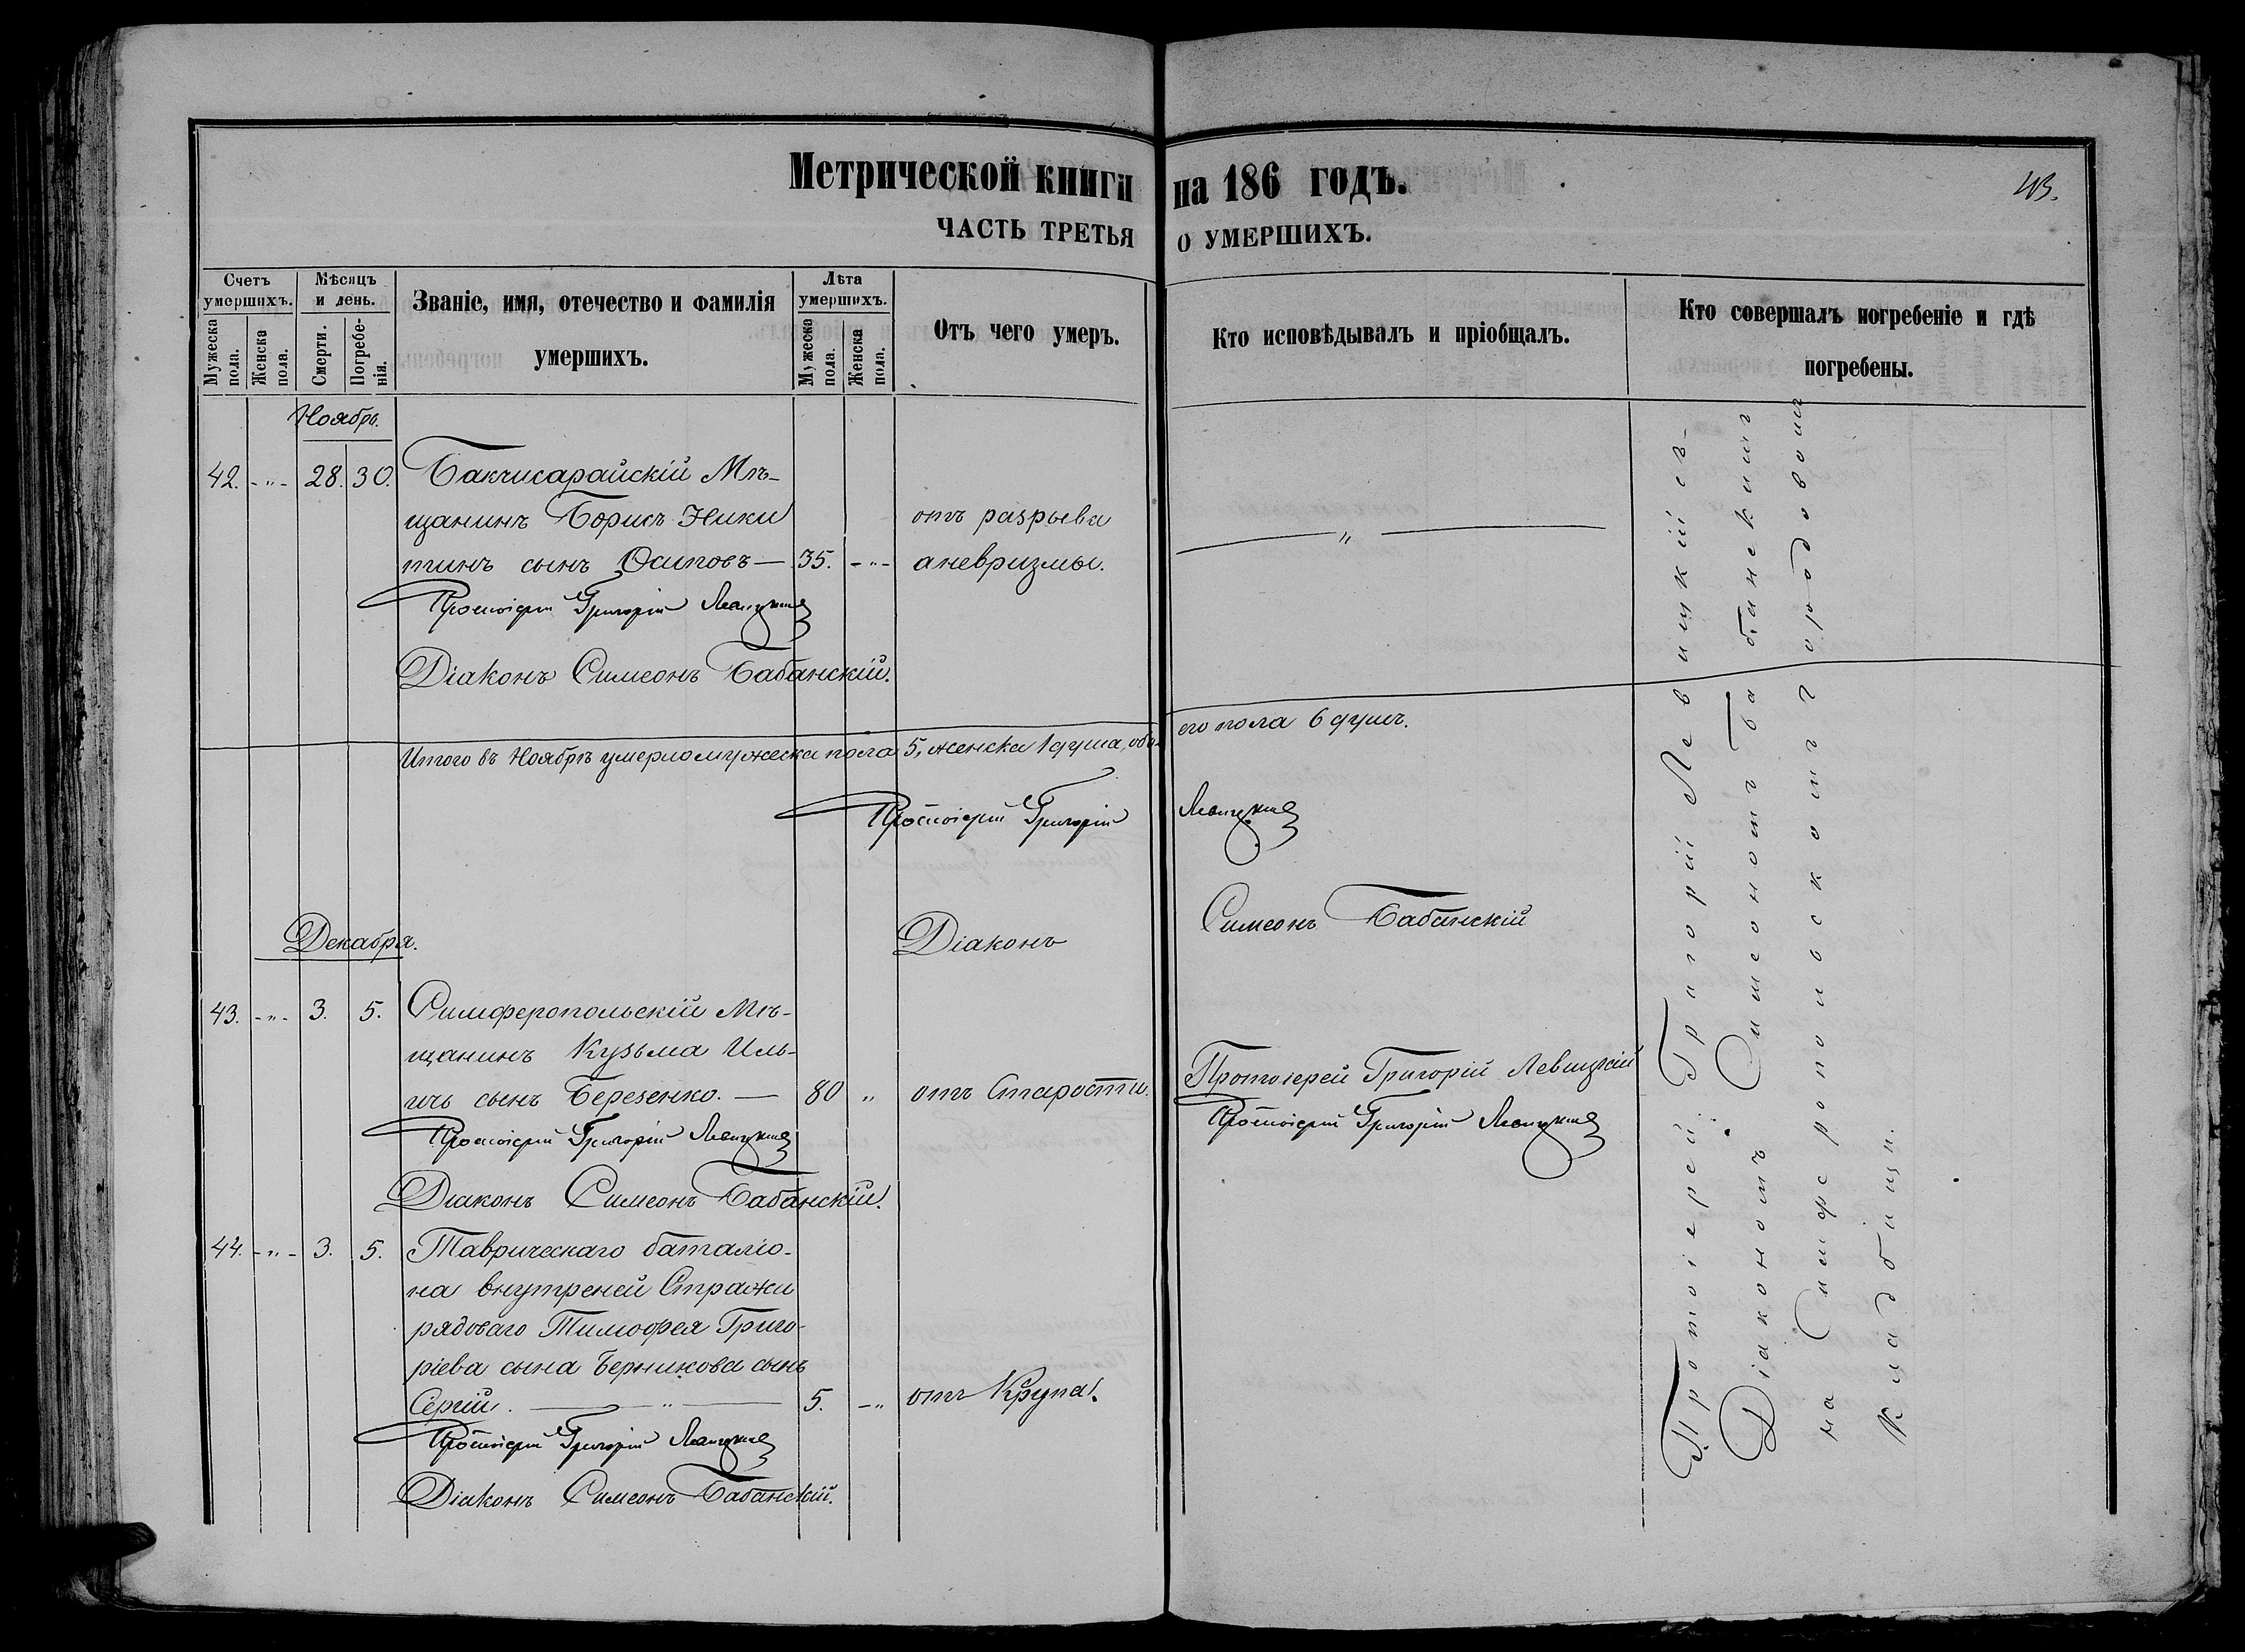 Метрической книги на 186 годъ.
43.
ЧАСТЬ ТРЕТЬЯ О УМЕРШИХЪ.
Счетъ умершихъ.
Мужеска пола.
Женска пола.
Мѣсяцъ и день.
Смерти.
Погребенія.
Званіе, имя, отечество и фамилія
умершихъ.
Лѣта умершихъ.
Мужеска пола.
Женска пола.
Отъ чего умеръ.
Кто исповѣдывалъ и пріобщалъ.
Кто совершалъ погребеніе и гдѣ
погребены.
Ноябрь.
42. -"- 28. 30. Бакчисарайскій Мѣ-
щанинъ Борисъ Ники
тинъ сынъ Осиповъ — 35. -"-
отъ разрыва
аневризмы.
"
Протоіерей Григорій Левицкій
Діаконъ Симеонъ Бабанскій.
Итого въ Ноябрѣ умерло мужеска пола 5, женска 1 душа, обо-
его пола 6 душъ.
Протоіерей Григорій Левицкій
Діаконъ Симеонъ Бабанскій
Декабря.
43. -"- 3. 5. Симферопольскій Мѣ-
щанинъ Кузьма Иль-
ичь сынъ Березенко. — 80 " отъ Старости.
Протоіерей Григорій Левицкій
Протоіерей Григорій Левицкій
Протоіерей Григорій Левицкій
Діаконъ Симеонъ Бабанскій.
44. -"- 3. 5. Таврическаго баталіо-
на внутреней Стражи
рядоваго Тимофея Григо-
ріева сына Берникова сынъ
Сергій. — " — 5. -" отъ Крупа.
Протоіерей Григорій Левицкій
Діаконъ Симеонъ Бабанскій.
Протоіерей Григорій Левицкій съ
Діакономъ Симеономъ Бабанскимъ
на Симферопольскомъ городовомъ
Кладбищѣ.